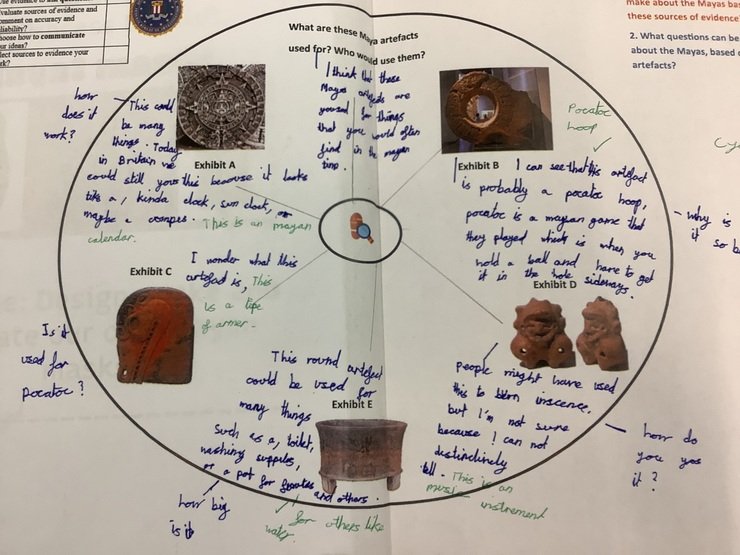 use evidence to
evaluate sources of evidence and
comment on accuracy and
liability?
hoose how to communicate
ur ideas?
lect sources to evidence your
rk?
make about the Mayas bas
these sources of evidence
2. What questions can be
about the Mayas, based o
artefacts?
What are these Maya artefacts
used for? Who would use them?
I think that these
Maya are
for things
that you would often
find in the mayan
time.
how
does it
work?
This could
be many
things. Today
in Britain we
could still this because it looks
like a, kinda clock, sun clock, or
maybe a compus. This is an mayan
calendar.
Exhibit A
Exhibit B
Pocatoc
hoop
I can see that this artefact
is probably a pocatoc hoop,
pocatoc is a mayan game that
they played which is when you
hold a ball and have to get
it in the hole sideways.
why is
it so b
Exhibit C
I wonder what this
artefad is, This
is a tipe
of armer.
Is it
used for
pocatoc?
Exhibit D
People might have used
this to burn inscence,
but I'm not sure
because I can not
distinclinely
tell. This is an
music instrement
how do
you yos
it?
This round artefect
could be used for
many things
Such as a, toilet,
washing supples,
or a pot for and others.
for others like
water.
Exhibit E
how big
is it